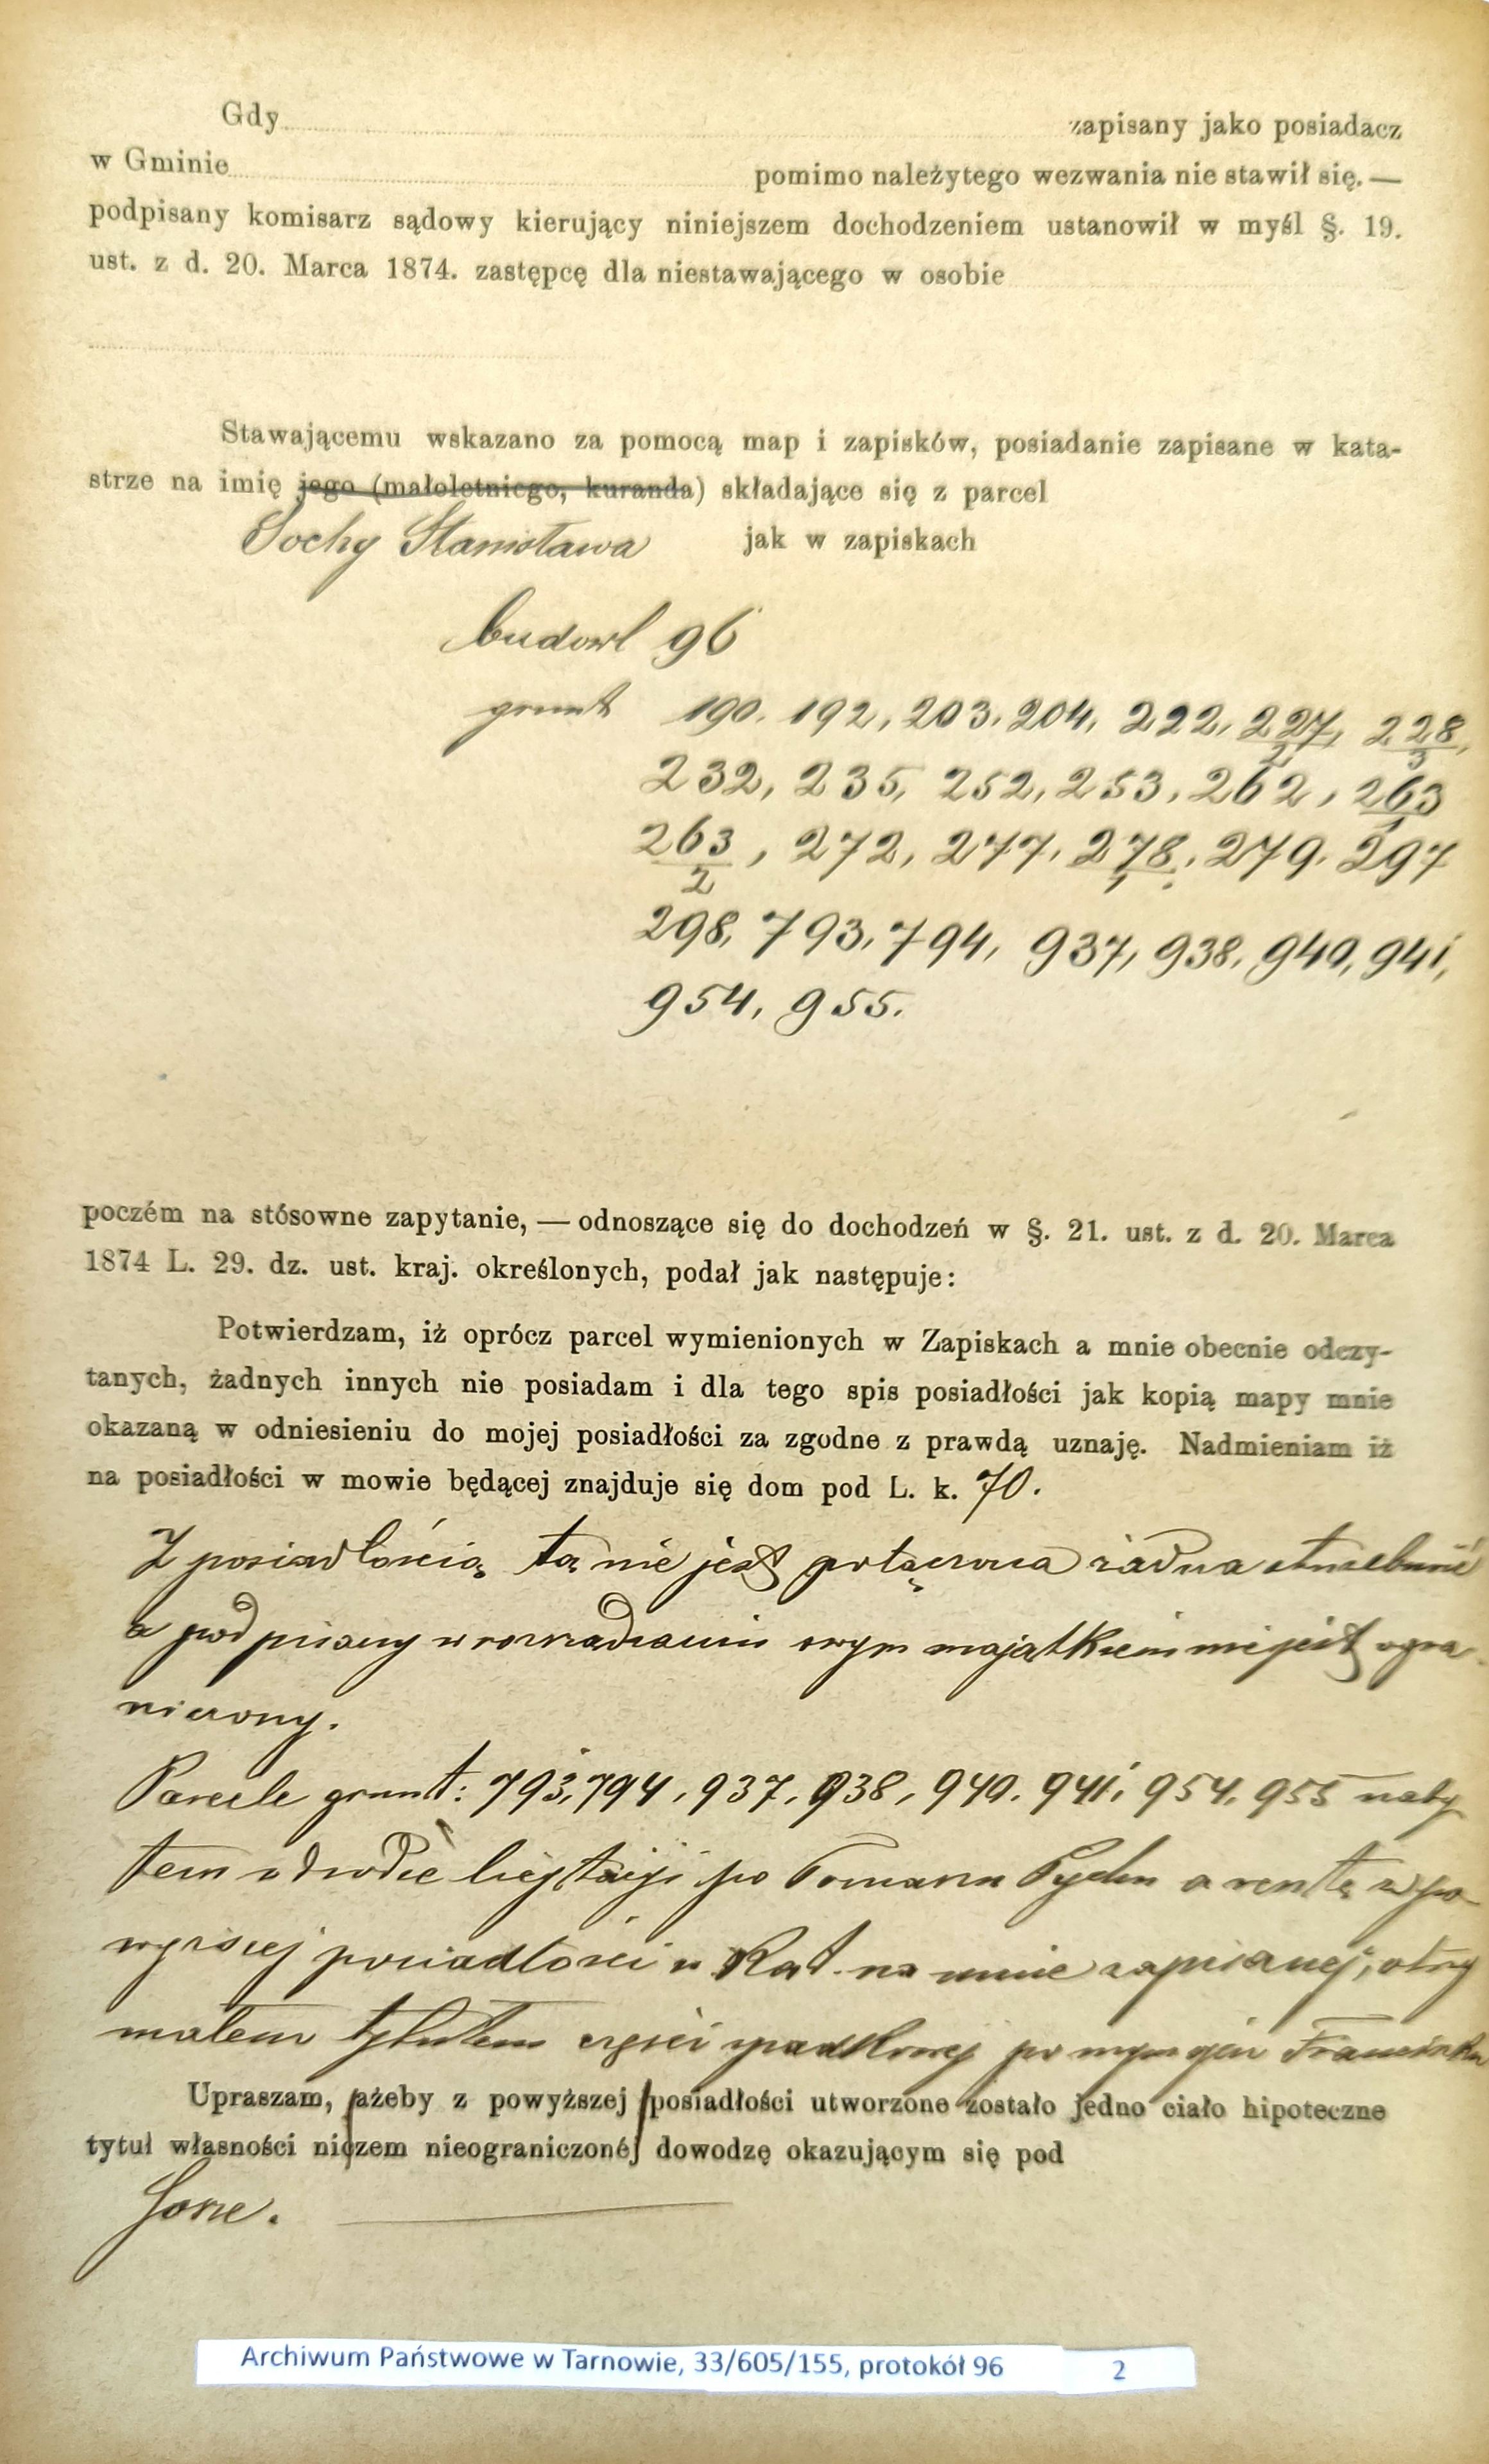 Gdy zapisany jako posiadacz
w Gminie pomimo należytego wezwania nie stawił się. —
podpisany komisarz sądowy kierujący niniejszem dochodzeniem ustanowił w myśl §. 19.
ust. z d. 20. Marca 1874. zastępcę dla niestawającego w osobie
Stawającemu wskazano za pomocą map i zapisków, posiadanie zapisane w kata-
strze na imię jego (małoletniego, kuranda) składające się z parcel
Sochy Stanisława jak w zapiskach
budowl 96
grunt 190. 192, 203. 204, 222, 227/2, 228/3,
232, 235, 252, 253, 262, 263/1
263/2, 272, 277, 278/1, 279, 297
298, 793, 794, 937, 938, 940, 941,
954, 955.
poczém na stósowne zapytanie, — odnoszące się do dochodzeń w §. 21. ust. z d. 20. Marca
1874 L. 29. dz. ust. kraj. określonych, podał jak następuje:
Potwierdzam, iż oprócz parcel wymienionych w Zapiskach a mnie obecnie odczy-
tanych, żadnych innych nie posiadam i dla tego spis posiadłości jak kopią mapy mnie
okazaną w odniesieniu do mojej posiadłości za zgodne z prawdą uznaję. Nadmieniam iż
na posiadłości w mowie będącej znajduje się dom pod L. k. 70.
Z posiadłością tą nie jest połączona żadna służebność
a podpisany w rozrządzaniu swym majątkiem nie jest ogra-
niczony.
Parcele grunt: 793, 794, 937, 938, 940, 941, 954, 955 naby
łem w drodze licytacji po Tomaszu a resztę z po-
wyższej posiadłości w Kat. na mnie zapisanej, otrzy
małem tytułem części spadkowej po mym ojcu Franciszku
Upraszam, ażeby z powyższej posiadłości utworzone zostało jedno ciało hipoteczne
tytuł własności niczem nieograniczonéj dowodzę okazującym się pod
Sosze.
Archiwum Państwowe w Tarnowie, 33/605/155, protokół 96 2